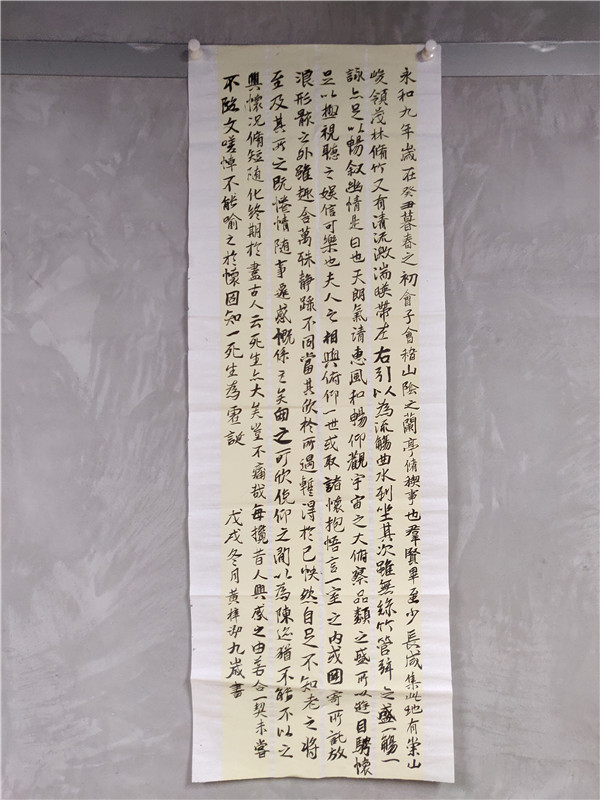 永和九年歲在癸丑暮春之初會于會稽山陰之蘭亭脩禊事也羣賢畢至少長咸集此地有崇山
峻領茂林脩竹又有清流激湍暎帶左右引以為流觴曲水列坐其次雖無絲竹管弦之盛一觴一
詠亦足以暢叙幽情是日也天朗氣清惠風和暢仰觀宇宙之大俯察品類之盛所以遊目騁懷
足以極視聽之娛信可樂也夫人之相與俯仰一世或取諸懷抱悟言一室之內或因寄所託放
浪形骸之外雖趣舍萬殊静躁不同當其欣於所遇暫得於己怏然自足不知老之將
至及其所之既惓情隨事遷感慨係之矣向之可欣俛仰之間以為陳迹猶不能不以之
興懷況脩短隨化終期於盡古人云死生亦大矣豈不痛哉每攬昔人興感之由若合一契未嘗
不臨文嗟悼不能喻之於懷固知一死生為虛誕
戊戌冬月黃梓 九歲書